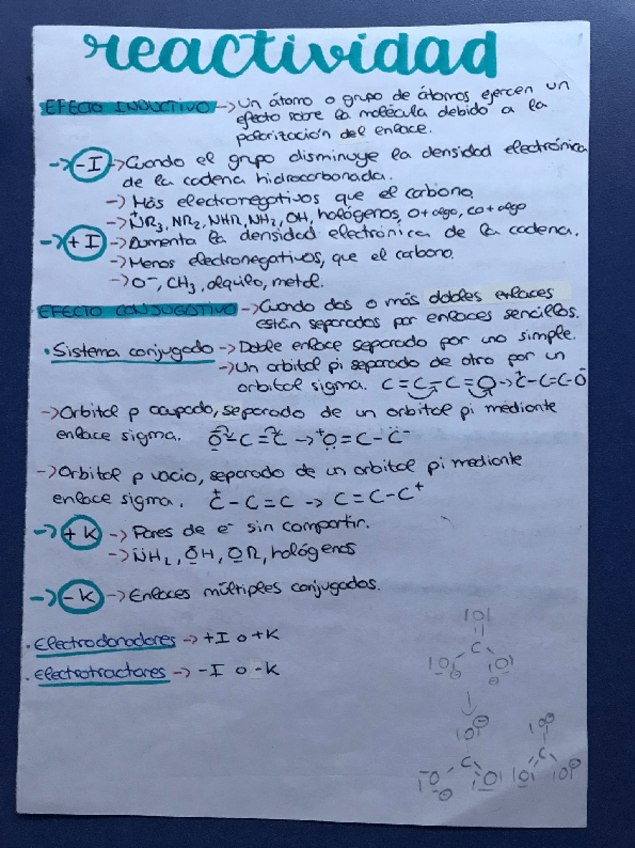 reactividad
EFECTO INDUCTIVO → Un átomo o grupo de átomos ejercen un
efecto sobre la molécula debido a la
polarización del enlace.
→ -I → Cuando el grupo disminuye la densidad electrónica
de la cadena hidrocarbonada.
→ Más electronegativos que el carbono.
→ N⁺R₃, NR₂, NHR, NH₂, OH, halógenos, O+algo, CO+algo
→ +I → Aumenta la densidad electrónica de la cadena.
→ Menos electronegativos, que el carbono.
→ O⁻, CH₃, alquilo, metal.
EFECTO CONJUGATIVO → Cuando dos o más dobles enlaces
están separados por enlaces sencillos.
· Sistema conjugado → Doble enlace separado por uno simple.
→ Un orbital pi separado de otro por un
orbital sigma. C=C-C=O → C⁺-C=C-O
→ Orbital p ocupado, separado de un orbital pi mediante
enlace sigma. O-C=C → ⁺O=C-C⁻
→ Orbital p vacío, separado de un orbital pi mediante
enlace sigma. C⁺-C=C → C=C-C⁺
→ +K → Pares de e⁻ sin compartir.
→ NH₂, OH, OR, halógenos
→ -K → Enlaces múltiples conjugados.
· Electrodonadores → +I o +K
· Electrotractores → -I o -K
|O|
C
|O ⊖ O| ⊖
|O| ⊖ |O ⊖
C C
|O ⊖ O| |O| |O| ⊖